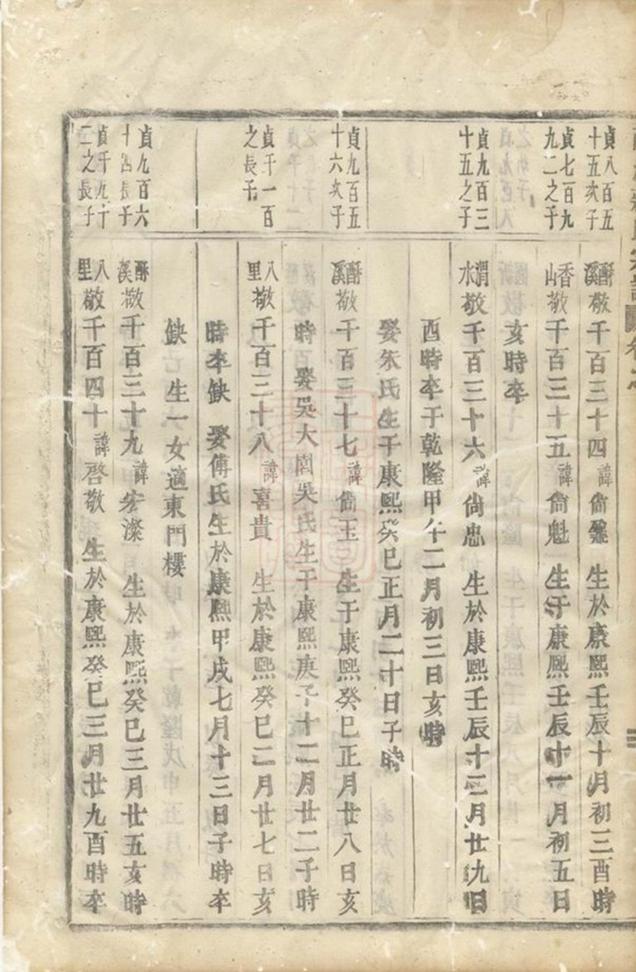 貞八百五十五次子
酥溪敬千百三十四 諱尙 生於康熙壬辰十月初三酉時
貞七百九九二之子
香山敬千百三十五 諱尙魁 生于康熙壬辰十一月初五日
亥時卒
貞九百三十五之子
渭水敬千百三十六 諱尙忠 生於康熙壬辰十二月廿九日
酉時卒于乾隆甲午二月初三日亥時
娶朱氏生于康熙癸巳正月二十日子時
貞九百五十六次子
酥溪敬千百三十七 諱尙玉 生于康熙癸巳正月廿八日亥
時 娶吳大園吳氏生于康熙庚子十二月廿二子時
貞千一百之長子
八里敬千百三十八 諱喜貴 生於康熙癸巳二月廿七日亥
時卒缺 娶傅氏生於康熙甲戌七月十三日子時卒
缺 生一女適東門樓
貞九百六十四長子
酥溪敬千百三十九 諱宏濚 生於康熙癸巳三月廿五亥時
貞千九十二之長子
八里敬千百四十 諱啓敬 生於康熙癸巳三月廿九酉時卒